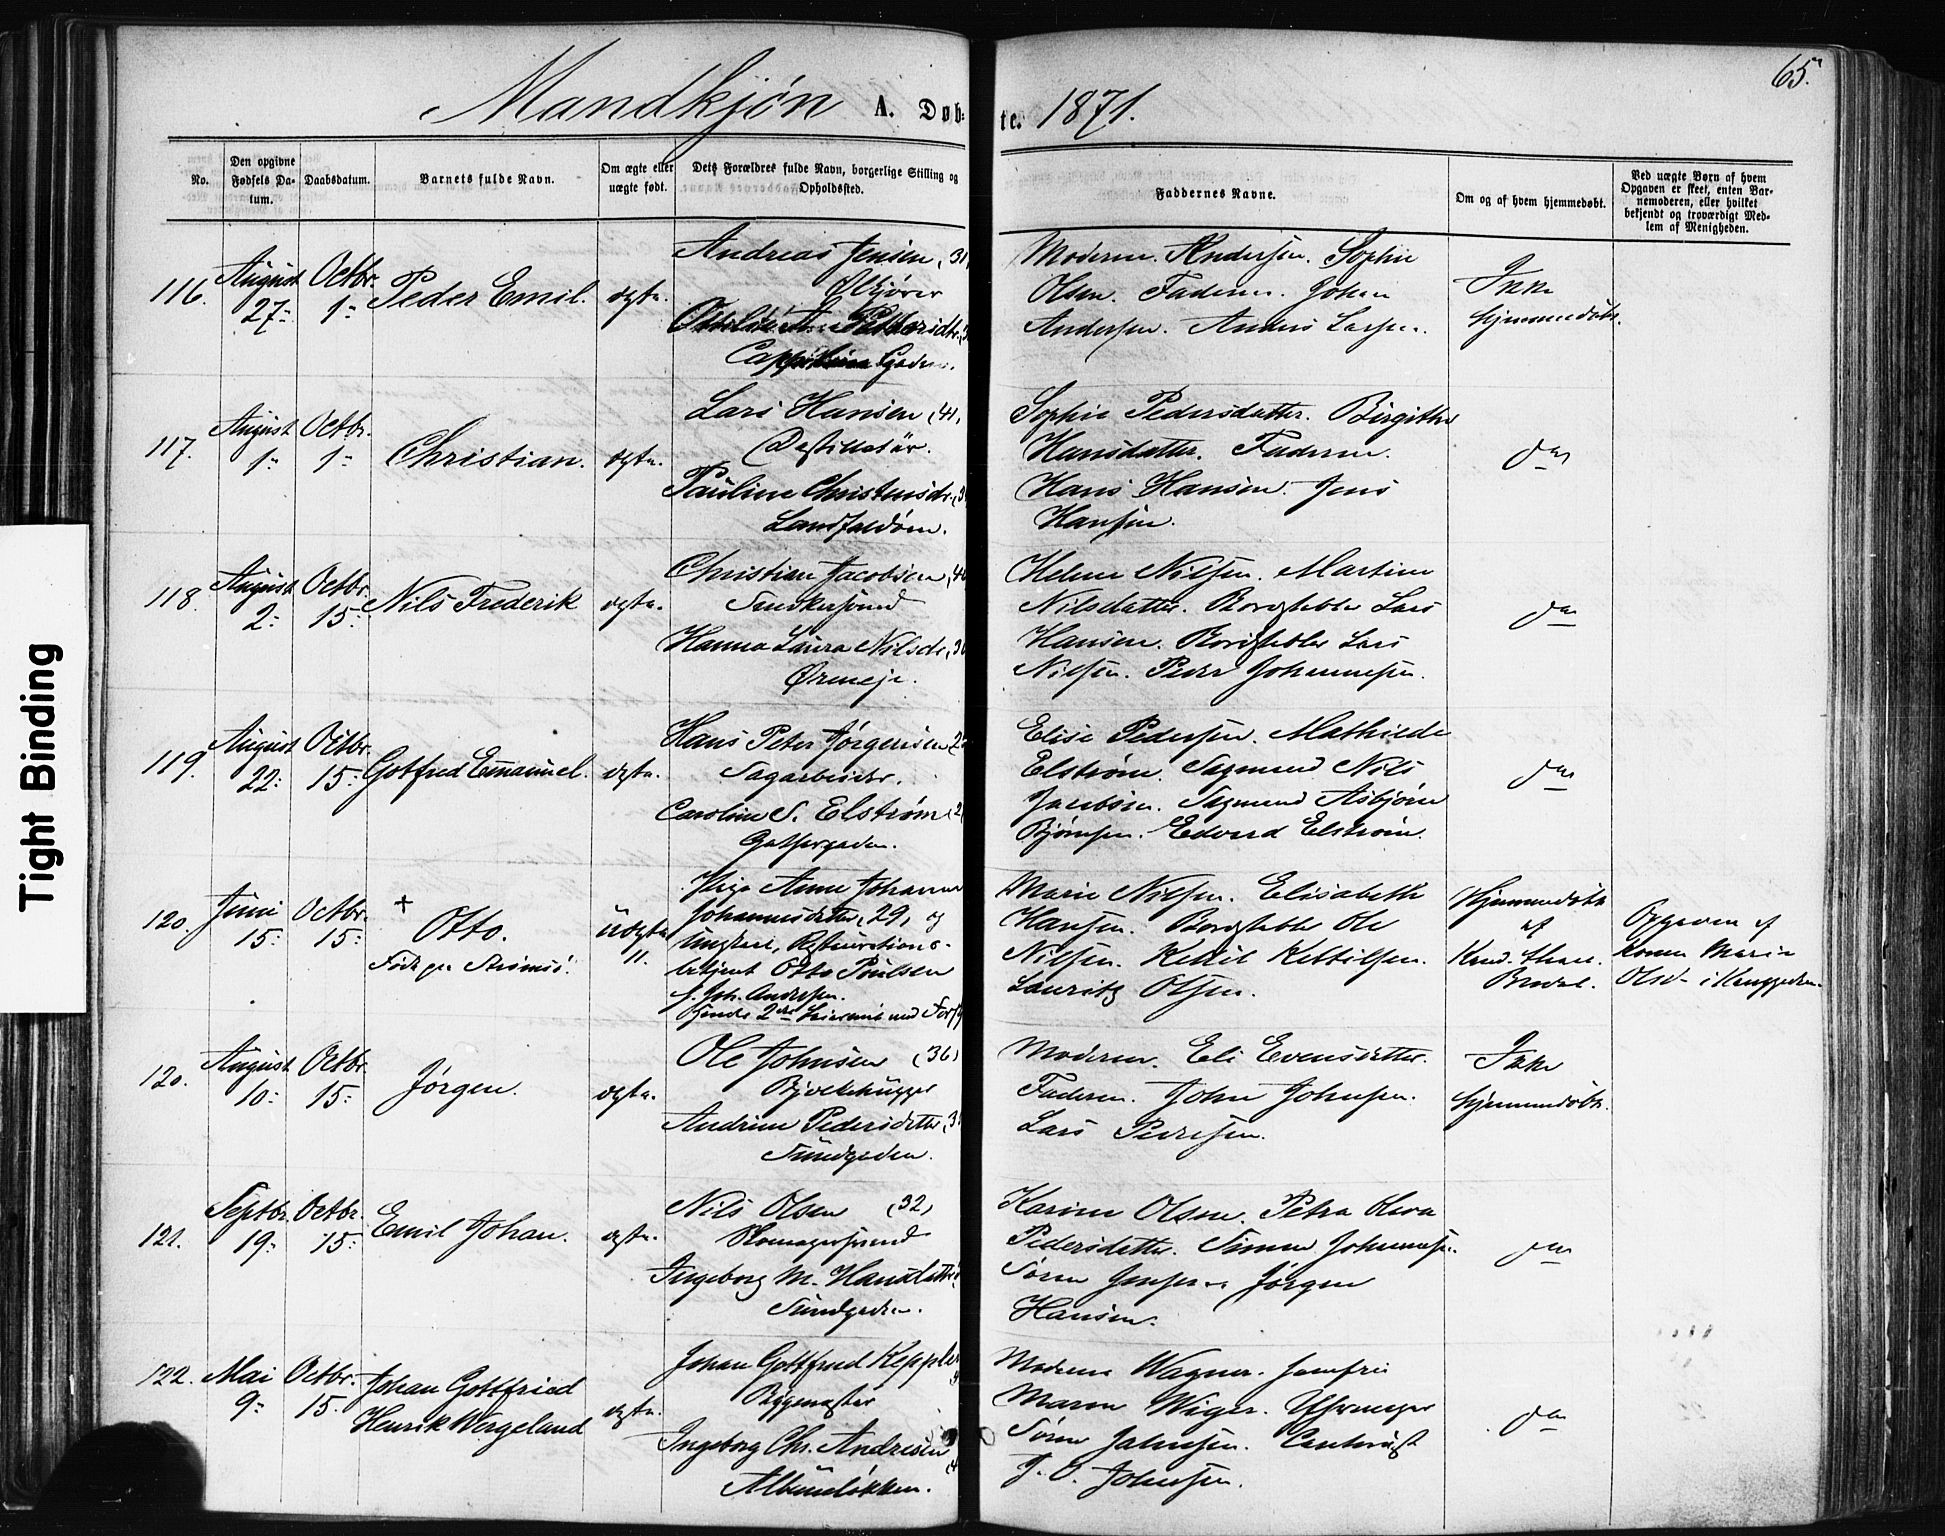 65.
Mandkjøn A. Døb-
te. 1871.
No.
Den opgivne Fødsels Da-
tum.
Daabsdatum.
Barnets fulde Navn.
Om ægte eller
uægte født.
Dets Forældres fulde Navn, borgerlige Stilling og
Opholdssted.
Faddernes Navne.
Om og af hvem hjemmedøbt.
Ved uægte Børn af hvem
Opgaven er skeet, enten Bar-
nemoderen, eller hvilket
bekjendt og troværdigt Med-
lem af Menigheden.
116. August 27- Octbr. 1- Peder Emil. ægte.
Andreas Jensen, 31,
Ølkjører
Gaden.
Moderen. Andersen. Sophie
Olsen. Faderen. Johan
Andersen. Anders Larsen.
Ikke
hjemmedøbt.
117. August 1- Octbr. 1- Christian. ægte.
Lars Hansen (41,
Destillatør.
Pauline Christensdr.
Landfaldøen.
Sophie Pedersdatter. Birgithe
Hansdatter. Faderen.
Hans Hansen. Jens
Hansen.
do
118. August 2- Octbr. 15- Nils Frederik ægte.
Christian Jacobsen, 40
Snekkersvend
Hanna Laura Nilsdr, 30
Ørneeje.
Helene Nilsen. Martine
Nilsdatter. Bordstabler Lars
Hansen. Bordstabler Lars
Nilsen. Peder Johannesen.
do
119. August 22- Octbr. 15- Gotfred Emanuel. ægte.
Hans Peter Jørgensen
Sagarbeider.
Caroline S. Elstrøm
Elise Pedersen. Mathilde
Elstrøm. Sagmand Nils
Jacobsen. Sagmand Asbjørn
Bjørnsen. Edvard Elstrøm.
do
120. Juni 15- Octbr. 15- + Otto. uægte
Født paa Strømsø.
Pige Anne Johanne
Johannesdatter, 29, og
Ungkarl, Restaurations-
betjent Otto Poulsen
f. Joh. Andersen.
Marie Nilsen. Elisabeth
Hansen. Bordstabler Ole
Nilsen. Kettil Kettilsen.
Lauritz Olsen.
Hjemmedøbt
af
Opgaven af
Konen Marie
120. August 10- Octbr. 15- Jørgen. ægte.
Ole Johnsen (36,
Bjelkehugger
Andrine Pedersdatter
Sundgaden.
Moderen. Eli Evensdatter.
Faderen. John Johnsen.
Lars Pedersen.
Ikke
hjemmedøbt.
121. Septbr. 19- Octbr. 15- Emil Johan. ægte.
Nils Olsen (32,
Skomagersvend
Ingeborg M. Hansdatter
Sundgaden.
Karine Olsen. Petra
Pedersdatter. Simen Johannesen.
Søren Jørgen
Hansen.
do
122. Mai 9- Octbr. 15- Johan Gottfried
Henrik Wergeland ægte.
Johan Gottfried Keppler
Byggmester
Ingeborg Chr. Andresen
Albumsløkken.
Madame Wagner. Jomfru
Maren Wiger.
Søren Johnsen.
J. O. Johnsen.
do
Tight Binding